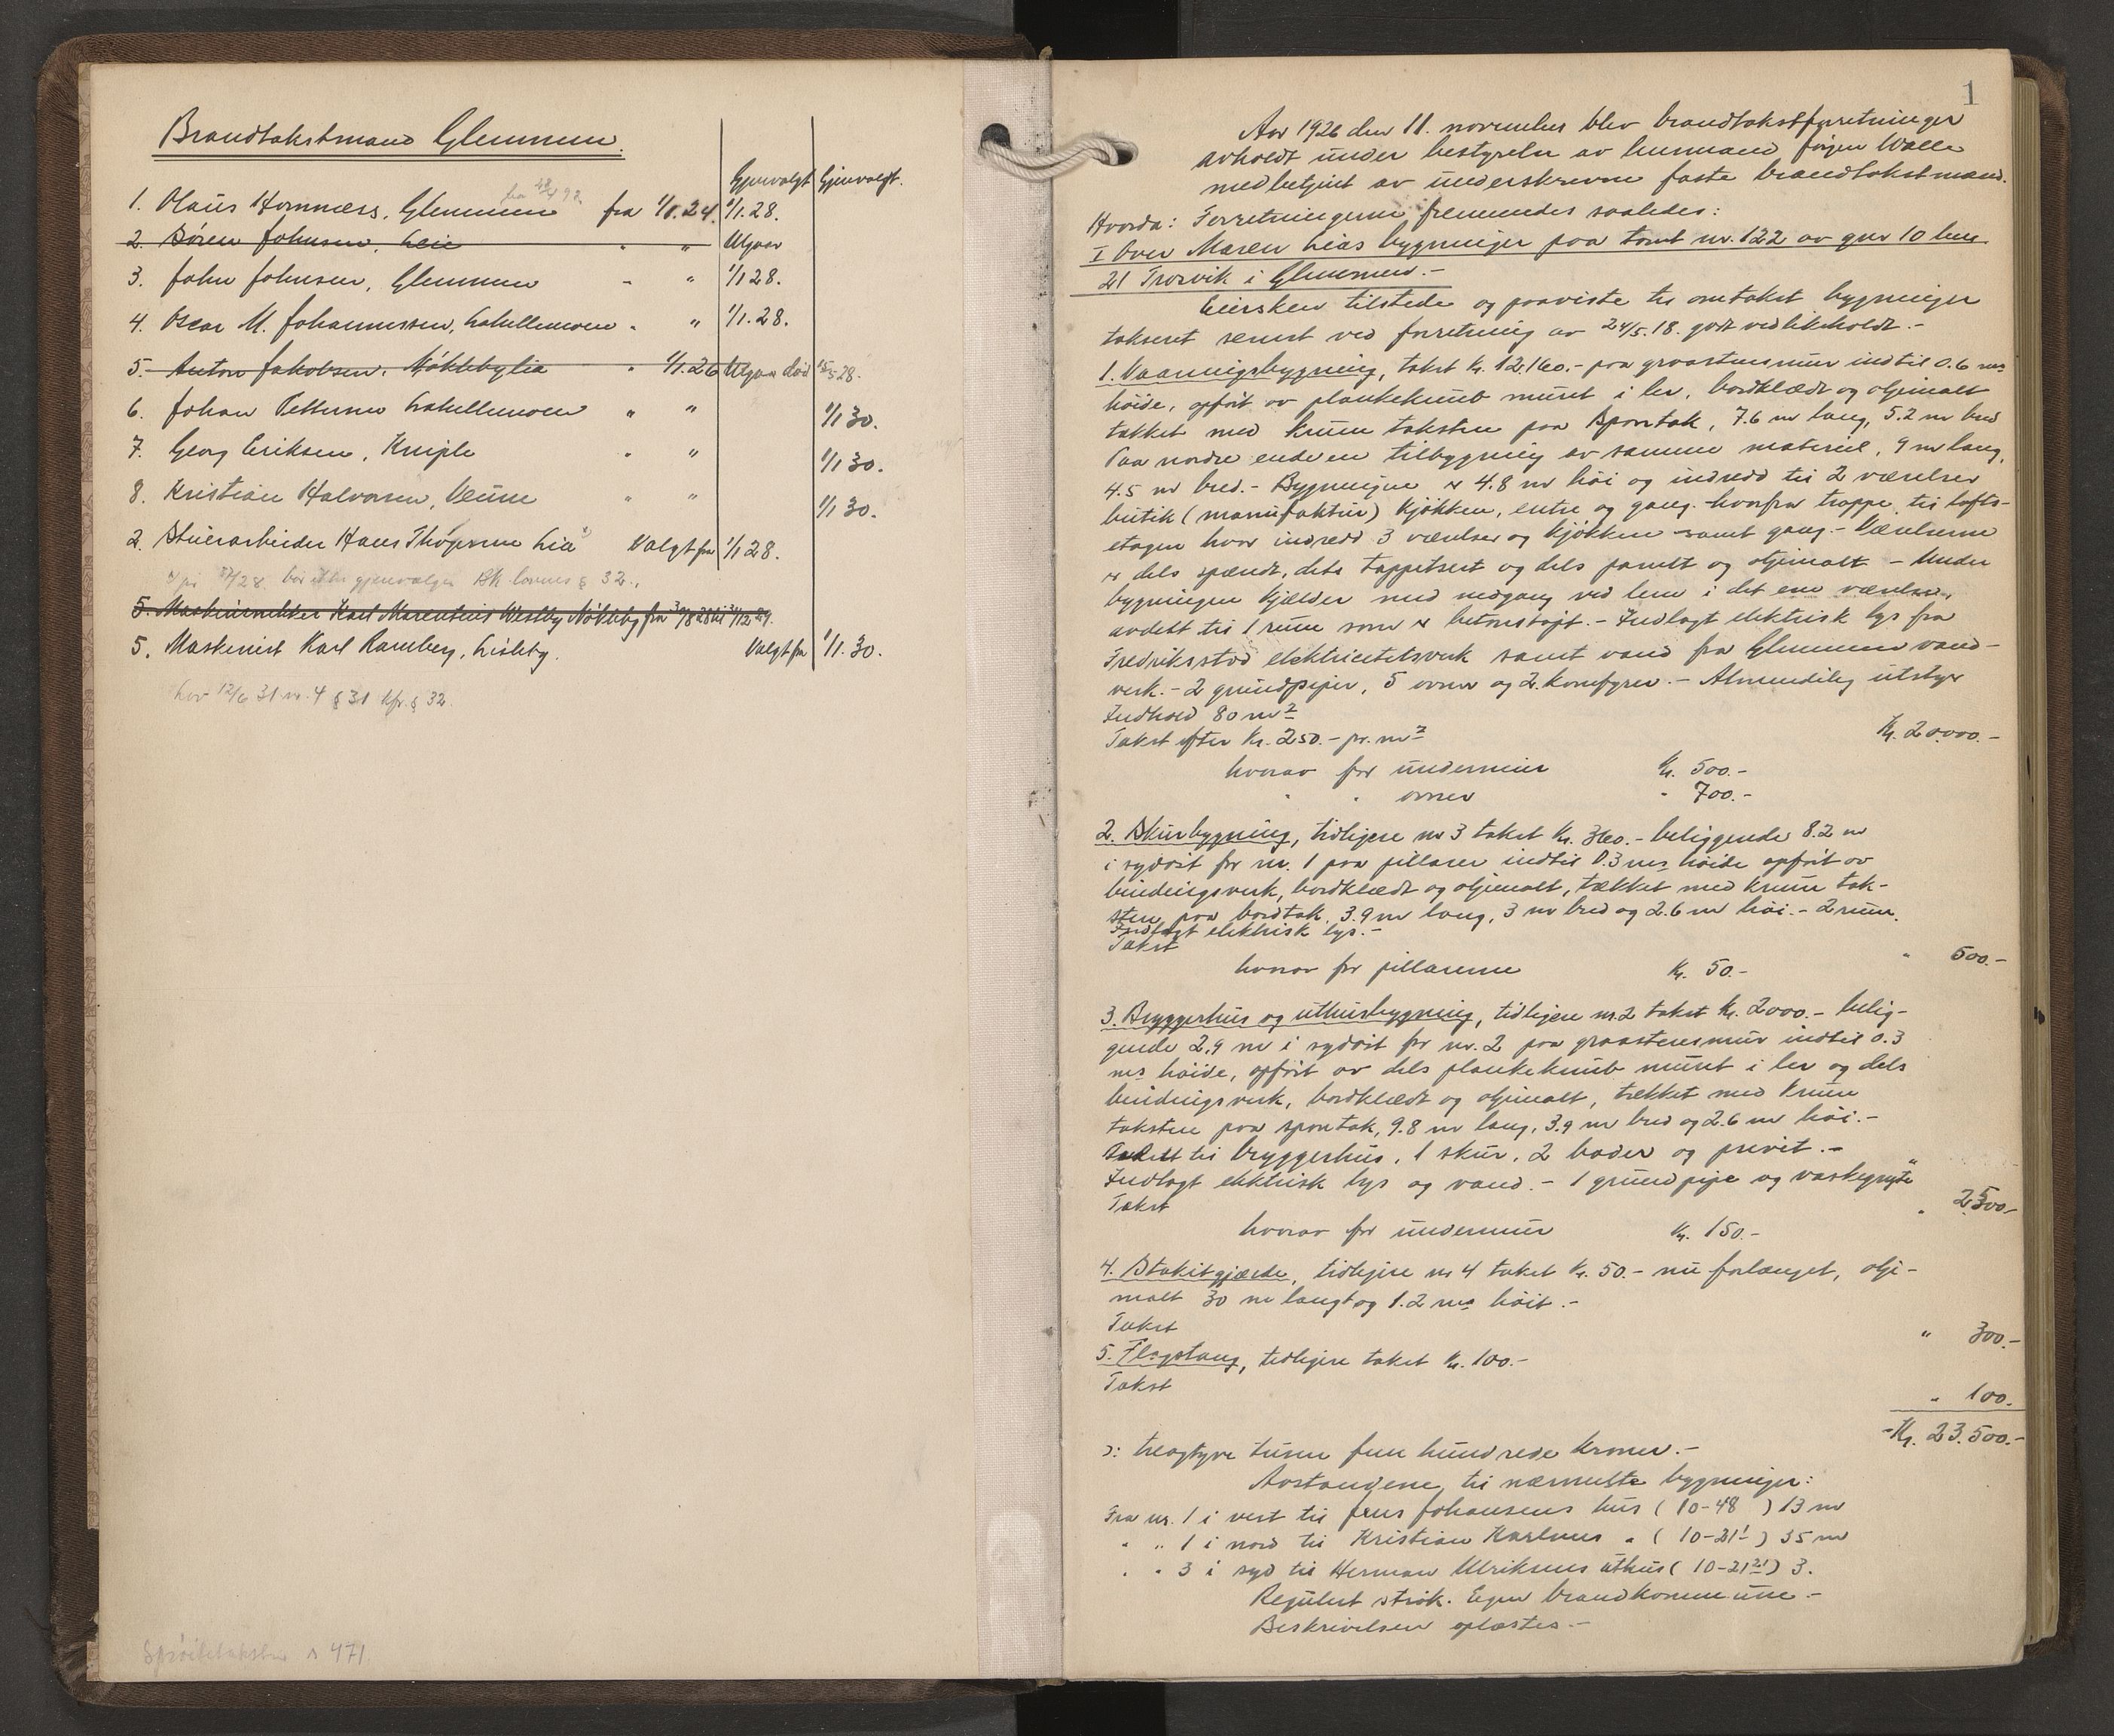 Brandtakstmænd Glemmen.
Gjenvalgt Gjenvalgt.
1. Olaus Hornnæss, Glemmen fra 1/1.24. 1/1.28.
2. Søren Johnsen, Leie " " Utgaar
3. John Johnsen, Glemmen - " 1/1 28.
4. Oscar M. Johannessen, Labellemoen " " 1/1.28.
5. Anton Jakobsen, Nøklebylia " 1/1.26 Utgaar død 28.
6. Johan Pettersen Labellemoen " " 1/1 30.
7. Georg Eriksen, Kniple " " 1/1 30.
8. Kristian Halvorsen, Veum " " 1/1 30.
2. Stuerarbeider Hans Thøgersen Lia Valgt fra 1/1 28.
bør ikke gjenvalges lovens § 32.
5. Maskinsnekker Karl Marentius Westby Nøkleby fra
5. Maskinist Karl Ramberg, Lisleby. Valgt fra 1/1.30.
Lov 12/6 31 nr. 4 § 31 kfr. § 32.
471
1
Aar 1926 den 11. november blev brandtakstforretninger
avholdt under bestyrelse av lensmand Jørgen Walle
med betjent av underskrevne faste brandtakstmænd.
Hvorda: Forretningerne fremmedes saaledes:
I Over Maren Lias bygninger paa tomt nr. 122 av gnr 10 bnr.
21 Trosvik i Glemmen.-
Eiersken tilstede og paaviste til omtakst bygninger
takseret senest ved forretning av 24/5.18. godt vedlikeholdt.-
1. Vaaningsbygning, takst kr. 12.160.- paa graastensmur indtil 0.6 ms
høide, opført av plankeknub muret i ler, bordklædt og oljemalt
tækket med krum taksten paa spontak, 7.6 m lang, 5.2 m bred
Paa nordre ende en tilbygning av samme materiel, 9 m lang,
4.5 m bred.- Bygningen er 4.8 m høi og indredd til 2 værelser
butik (manufaktur) kjøkken, entre og gang - hvorfra trappe til lofts-
etagen hvor indredd 3 værelser og kjøkken samt gang.- Værelserne
er dels spændt, dels tappetsert og dels panelt og oljemalt - Under
bygningen kjælder med nedgang ved lem i det ene værelse,
avdelt til 1 rum som er betonstøpt.- Indlagt elektrisk lys fra
Fredriksstad elektricitetsverk samt vand fra Glemmen vand-
verk.- 2 grundpiper, 5 ovner og 2 komfyrer.- Almindelig utstyr
Indhold 80 m2
Takst efter kr. 250.- pr. m2 Kr. 20.000.-
hvorav for undermur Kr. 500.-
" " ovner " 700.-
2. Skurbygning, tidligere nr 3 takst kr. 360.- beliggende 8.2 m
i sydøst for nr. 1 paa pillarer indtil 0.3 ms høide opført av
bindingsverk, bordklædt og oljemalt, tækket med krum tak-
sten paa bordtak, 3.9 m lang, 3 m bred og 2.6 m høi.- 2 rum.
Indlagt elektrisk lys.-
Takst " 500.-
hvorav for pillarerne Kr. 50.-
3. Bryggerhus og uthusbygning, tidligere nr. 2 takst kr. 2000.- belig-
gende 2,9 m i sydøst for nr. 2 paa graastensmur indtil 0.3
ms høide, opført av dels plankeknub muret i ler og dels
bindingsverk, bordklædt og oljemalt, tækket med krum
taksten paa spontak, 9.8 m lang, 3.9 m bred og 2.6 m høi.-
Avdelt til bryggerhus, 1 skur, 2 boder og privet.-
Indlagt elektrisk lys og vand.- 1 grundpipe og vaskegryte
Takst " 2.500.-
hvorav for undermur Kr. 150.-
4. Stakitgjærde, tidligere nr 4 takst kr. 50.- nu forlænget, olje-
malt 30 m langt og 1.2 ms høit.-
Takst " 300.-
5. Flagstang, tidligere takst kr. 100.-
Takst " 100.
- Kr. 23.500.-
ɔ: treogtyve tusen fem hundrede kroner.-
Avstandene til nærmeste bygninger:
Fra nr. 1 i vest til Jens Johansens hus (10-48 ) 13 m
" " 1 i nord til Kristian Karlsens " (10-21 1) 35 m
" " 3 i syd til Herman Ulriksens uthus (10-21 21) 3.
Regulert strøk. Egen brandkommune.-
Beskrivelsen oplæstes.-